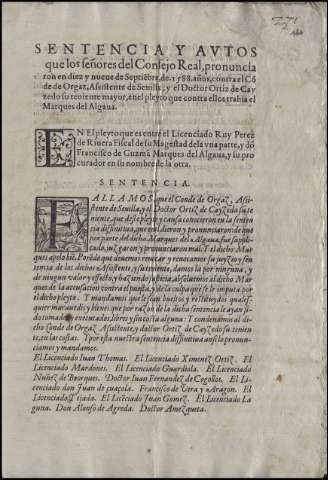 SENTENCIA Y AVTOS
que los señores del Consejo Real, pronuncia
ron en diez y nueue de Septiẽbre, de. 1588. años, contra el Cõ
de de Orgaz, Asistente de Seuilla, y el Doctor Ortiz de Cay
zedo su teniente mayor, en el pleyto que contra ellos trahia el
Marques del Algaua.
EN El pleyto que es entre el Licenciado Ruy Perez
de Riuera Fiscal de su Magestad de la vna parte, y dõ
Francisco de Guzmã Marques del Algaua, y su pro
curador en su nombre de la otra.
SENTENCIA.
FALLAMOS, que el Conde de Orgaz, Assi-
stente de Seuilla, y el Doctor Ortiz de Cayzedo su te
niente, que deste pleyto y causa conocieron, en la senten
cia diffinitiua, que en el dieron y pronunciaron de que
por parte del dicho Marques del Algaua, fue supli
cado, juzgaron y pronunciaron mal. Y el dicho Mar
ques apelo biẽ. Por ẽde que deuemos reuocar y reuocamos su juyzio y sen
tencia de los dichos Assistente, y su teniente, damos la por ninguna, y
de ningun valor y effecto, y haziendo justicia, absoluemos al dicho Mar
ques de la accusacion contra el puesta, y de la culpa que se le imputa por
el dicho pleyto. Y mandamos que le sean bueltos y restituydos quales-
quier marauedis y bienes que por razon de la dicha sentencia le ayan
tomado y executado, libres y sin costa alguna. Y condenamos al di-
cho Conde de Orgaz Assistente, y doctor Ortiz de Cayzedo su tenien
te, en las costas. Y por esta nuestra sentencia diffinitiua assi lo pronun-
ciamos y mandamos.
El Licenciado Iuan Thomas. El Licenciado Ximenez Ortiz. El
Licenciado Mardones. El Licenciado Guardiola. El Licenciado
Nuñez de Boorques. Doctor Iuan Fernandez de Cogollos. El Li-
cenciado don Iuan de çuaçola. Francisco de Vera y Aragon. El
Licenciado Tejada. El Licẽciado Iuan Gomez. El Licenciado La
guna. Don Alonso de Agreda. Doctor Amezqueta.